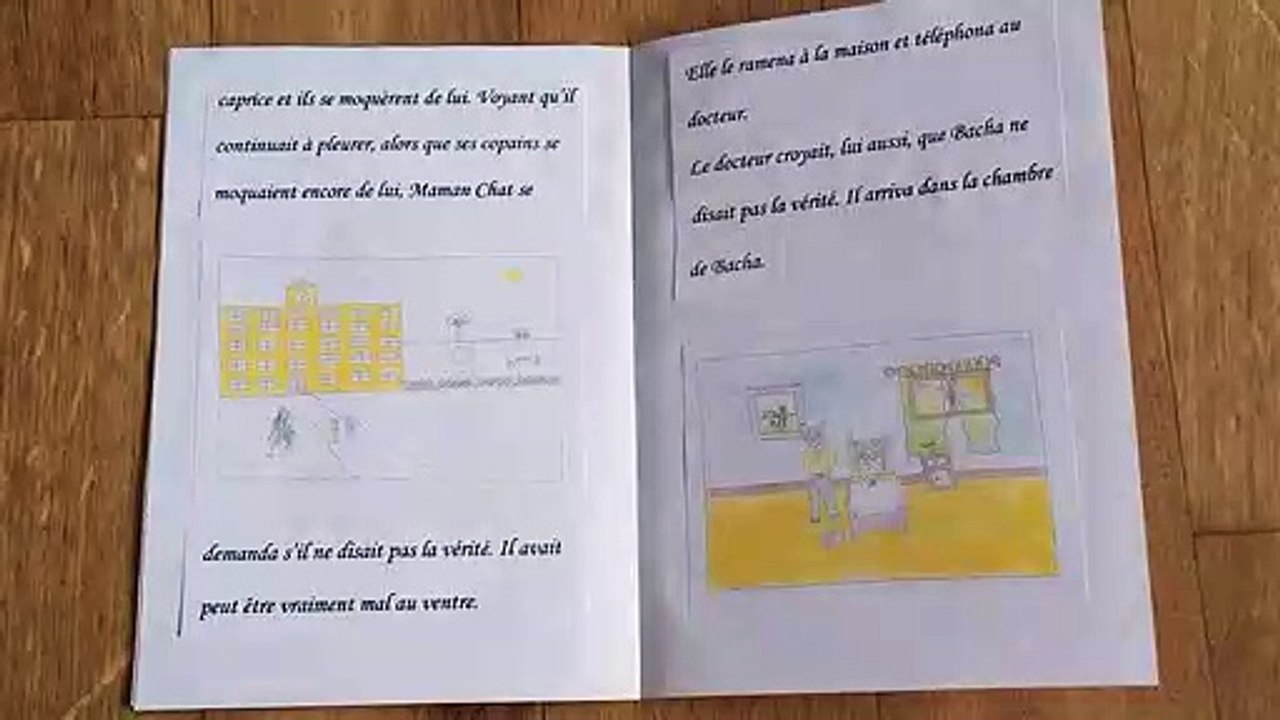 caprice et ils se moquèrent de lui. Voyant qu'il
continuait à pleurer, alors que ses copains se
moquaient encore de lui, Maman Chat se
demanda s'il ne disait pas la vérité. Il avait
peut être vraiment mal au ventre.
Elle le ramena à la maison et téléphona au
docteur.
Le docteur croyait, lui aussi, que Bacha ne
disait pas la vérité. Il arriva dans la chambre
de Bacha.